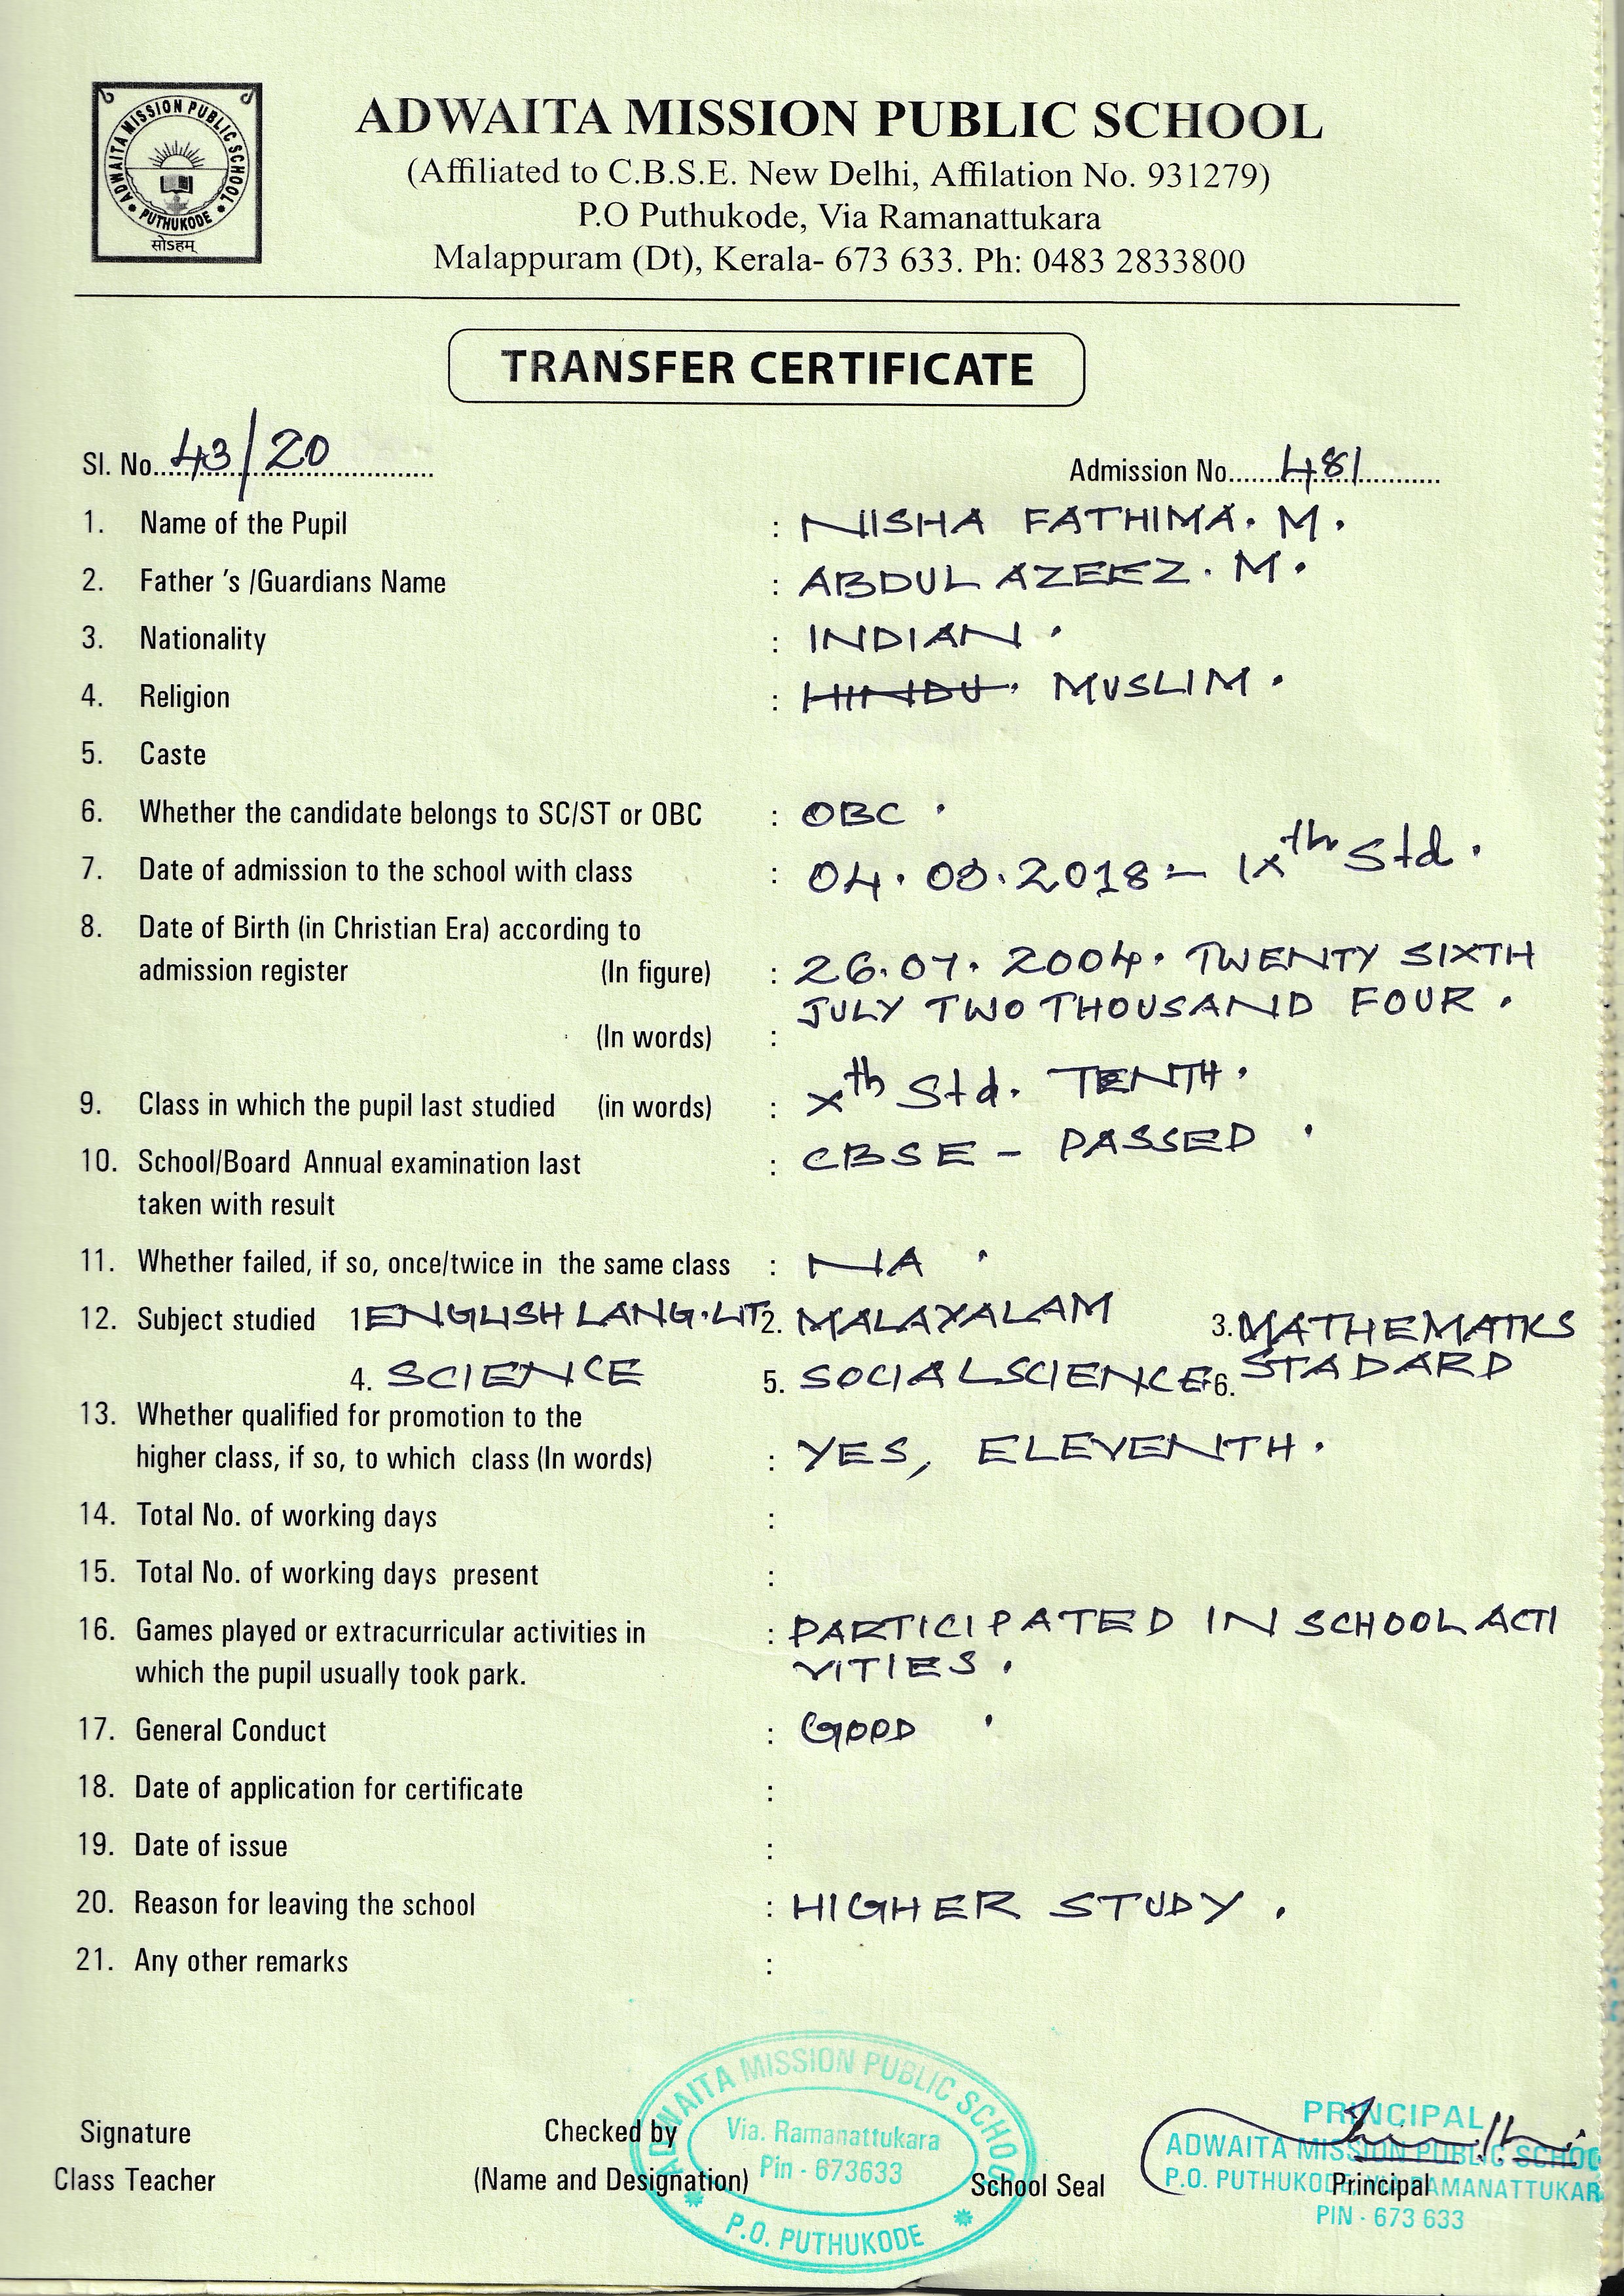 ADWAITA MISSION PUBLIC SCHOOL
PUTHUKODE
सोऽहम्
ADWAITA MISSION PUBLIC SCHOOL
(Affiliated to C.B.S.E. New Delhi, Affilation No. 931279)
P.O Puthukode, Via Ramanattukara
Malappuram (Dt), Kerala- 673 633. Ph: 0483 2833800
TRANSFER CERTIFICATE
Sl. No. 43/20 Admission No. 481
1. Name of the Pupil : NISHA FATHIMA. M.
2. Father 's /Guardians Name : ABDUL AZEEZ. M.
3. Nationality : INDIAN.
4. Religion : HINDU. MUSLIM.
5. Caste
6. Whether the candidate belongs to SC/ST or OBC : OBC .
7. Date of admission to the school with class : 04. .2018 - IXth Std.
8. Date of Birth (in Christian Era) according to
admission register (In figure) : 26.07. 2004. TWENTY SIXTH
JULY TWO THOUSAND FOUR.
(In words) :
9. Class in which the pupil last studied (in words) : Xth Std. TENTH.
10. School/Board Annual examination last : CBSE - PASSED .
taken with result
11. Whether failed, if so, once/twice in the same class : NA .
12. Subject studied 1 ENGLISH LANG.LIT 2. MALAYALAM 3. MATHEMATIKS
4. SCIENCE 5. SOCIAL SCIENCE 6. STADARD
13. Whether qualified for promotion to the
higher class, if so, to which class (In words) : YES, ELEVENTH.
14. Total No. of working days :
15. Total No. of working days present :
16. Games played or extracurricular activities in : PARTICIPATED IN SCHOOL ACTI
which the pupil usually took park. VITIES.
17. General Conduct : GOOD .
18. Date of application for certificate :
19. Date of issue :
20. Reason for leaving the school : HIGHER STUDY.
21. Any other remarks :
ADWAITA MISSION PUBLIC SCHOOL
Via. Ramanattukara
Pin - 673633
P.O. PUTHUKODE
PRINCIPAL
ADWAITA MISSION PUBLIC SCHOO
P.O. PUTHUKODE, VIA RAMANATTUKAR
PIN - 673 633
Signature Checked by
Class Teacher (Name and Designation) School Seal Principal